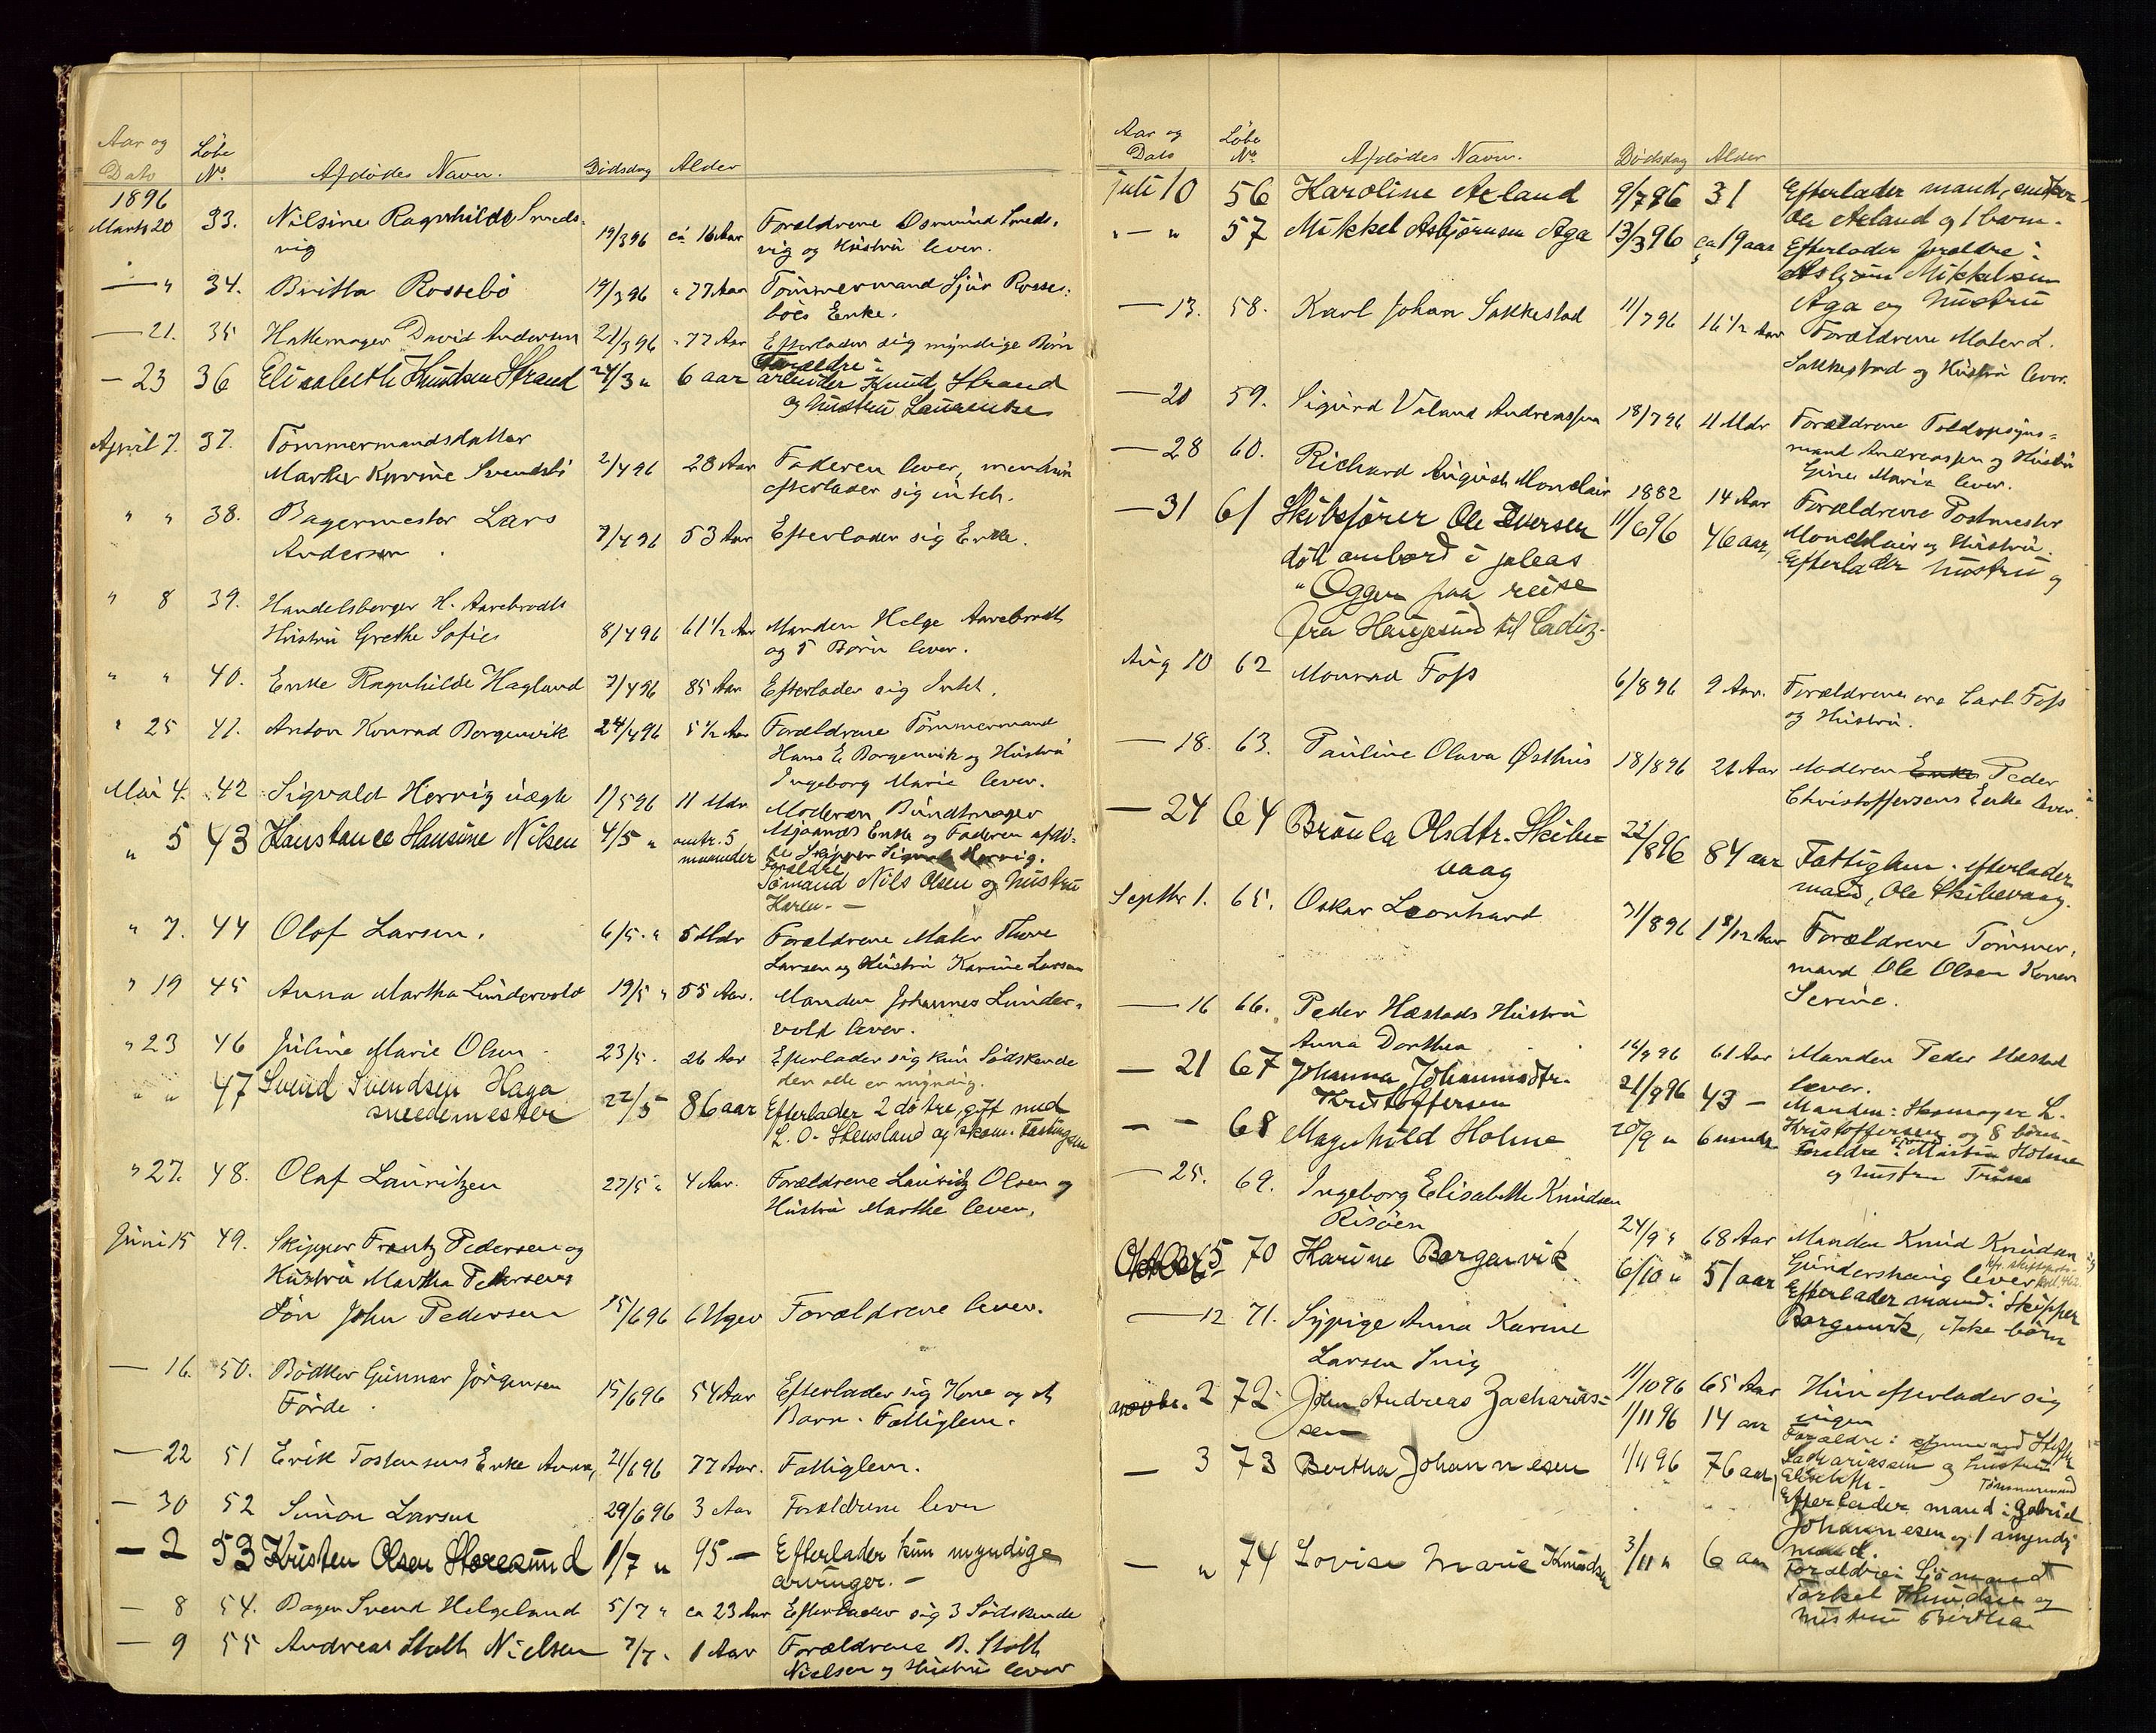 Aar og Dato Løbe No. Afdödes Navn. Dödsdag Alder
1896
Marts 20 33. Nilsine Ragnhilde Smeds- 19/3 96 ca 16 Aar Forældrene Osmund Smeds-
vig vig og Hustru lever.
— " 34. Britta Rossebö 19/3 96 " 77 Aar Tömmermand Sjur Rosse-
böes Enke.
— 21. 35 Hattemager David Andersen 21/3 96 " 77 Aar Efterlader sig myndige Börn
— 23 36 Elisabeth Knudsen Strand 24/3 " 6 aar Forældre:
arbeider Knud Strand
og hustru Laurentze
April 7. 37. Tömmermandsdatter
Marthe Karine Svendsbö 2/4 96 28 Aar Faderen lever, men hun
efterlader sig intet.
" " 38. Bagermester Lars 7/4 96 53 Aar Efterlader sig Enke.
Andersen.
" 8 39. Handelsborger H. Aarebrodts
Hustru Grethe Sofie 8/4 96 61 1/2 Aar Manden Helge Aarebrodt
og 5 Börn lever.
" " 40. Enke Ragnhilde Hagland 7/4 96 85 Aar Efterlader sig Intet.
" 25 41. Anton Konrad Borgenvik 24/4 96 5 1/2 Aar Forældrene Tömmermand
Hans E Borgenvik og Hustru
Ingeborg Marie lever.
Mai 4. 42 Sigvald Hervig uægte 1/5 96 11 Mdr Moderen Bundtmager
Enke og Faderen afdö-
de Skipper Sigvald Hervig.
" 5 43 Konstance Hansine Nilsen 4/5 " omtr. 5
maaneder Forældre
Sömand Nils Olsen og hustru
Karen. —
" 7. 44 Olaf Larsen. 6/5 " 5 Mdr Forældrene Maler Thore
Larsen og Hustru Karine Larsen
" 19 45 Anna Martha Lundervold 19/5 " 55 Aar. Manden Johannes Lunder-
vold lever.
" 23 46 Juline Marie Olsen 23/5 " 26 Aar Efterlader sig kun Södskende
der alle er myndig.
" " 47 Svend Svendsen Haga 22/5 86 aar Efterlader 2 dötre, gift med
smedemester L. O. Stensland og skom.
" 27. 48. Olaf Lauritzen 27/5 " 4 Aar. Forældrene Lauritz Olsen og
Hustru Marthe lever.
Juni 15 49. Skipper Frantz Pedersen og
Hustru Martha Pedersens
Sön John Pedersen 15/6 96 6 Uger Forældrene lever.
— 16. 50. Bödker Gunnar Jörgensen 15/6 96 54 Aar Efterlader sig Kone og et
Förde. Barn. Fattiglem.
— 22 51 Erik Tostensens Enke Anna, 21/6 96 77 Aar. Fattiglem.
— 30 52 Simon Larsen 29/6 96 3 Aar Forældrene lever
— 2 53 Kristen Olsen Storesund 1/7 " 95 — Efterlader kun myndige
arvinger. —
— 8 54. Bager Svend Helgeland 5/7 " ca 23 Aar Efterlader sig 3 Södskende
— 9 55 Andreas Stolt Nielsen 7/7 " 1 Aar Forældrene B. Stolt
Nielsen og Hustru lever
Aar og Dato Løbe No. Afdödes Navn. Dödsdag Alder
juli 10 56 Karoline Aeland 9/7 96 31 Efterlader mand,
Ole Aeland og 1 barn.
" — " 57 Mikkel Asbjörnsen Aga 13/3 96 ca 19 aar Efterlader forældre:
Asbjörn Mikkelsen
Aga og hustru
— 13. 58. Karl Johan Sakkestad 11/7 96 16 1/2 Aar Forældrene Maler L.
Sakkestad og Hustru lever.
— 20 59. Sigurd Valand Andreassen 18/7 96 11 Mdr Forældrene Toldopsyns-
mand Andreassen og Hustru
Gine Marie lever.
— 28 60. Richard August Monclair 1882 14 Aar Forældrene Postmester
Monclair og Hustru.
— 31 61 Skibsfører Ole Iversen 11/6 96 46 aar, Efterlader hustru og
död ombord i jaleas
" Oggen paa reise
fra Haugesund til Cadiz.
Aug 10 62 Monrad Foss 6/8 96 9 Aar. Forældrene ere Carl Foss
og Hustru.
— 18. 63. Pauline Olava Østhus 18/8 96 26 Aar Moderen Enke Peder
Christoffersens Enke lever.
— 24 64 Bröula Olsdtr. Skibe- 22/8 96 84 aar Fattiglem. efterlader
vaag mand, Ole Skibevaag.
Septbr 1. 65. Oskar Leonhard 31/8 96 1 8/12 Aar Forældrene Tömmer-
mand Ole Olsen Konen
Serine.
— 16 66. Peder Hæstads Hustru
Anna Dorthea 14/9 96 61 Aar Manden Peder Hæstad
lever.
— 21 67 Johanna Johannesdtr. 21/9 96 43 — Manden: Skomager L.
Kristoffersen Kristoffersen og 8 börn.
— – 68 Magnhild Holme 20/9 " 6 mndr Forældre: Martin Holme
og hustru
— 25. 69. Ingeborg Elisabeth Knudsen
Risöen 24/9 " 68 Aar Manden Knud Knudsen
Gundershaug lever
Oktober 5 70 Karine Borgenvik 6/10 " 51 aar Efterlader mand: Skipper
Borgenvik, ikke börn
— 12 71. Sypige Anna Karine
Larsen Snig 11/10 96 65 Aar Hun efterlader sig
ingen
novbr. 2 72 John Andreas Zacharias- 1/11 96 14 aar Forældre:
sen Sachariassen og hustru
Elisabeth.
— 3 73 Bertha Johannesen 1/11 96 76 aar, Tömmermand
Efterlader mand: Gabriel
Johannesen og 1 myndig
— " 74 Lovise Marie Knudsen 3/11 " 6 aar Forældre: Sjömand
Torkel Knudsen og
hustru Bertha